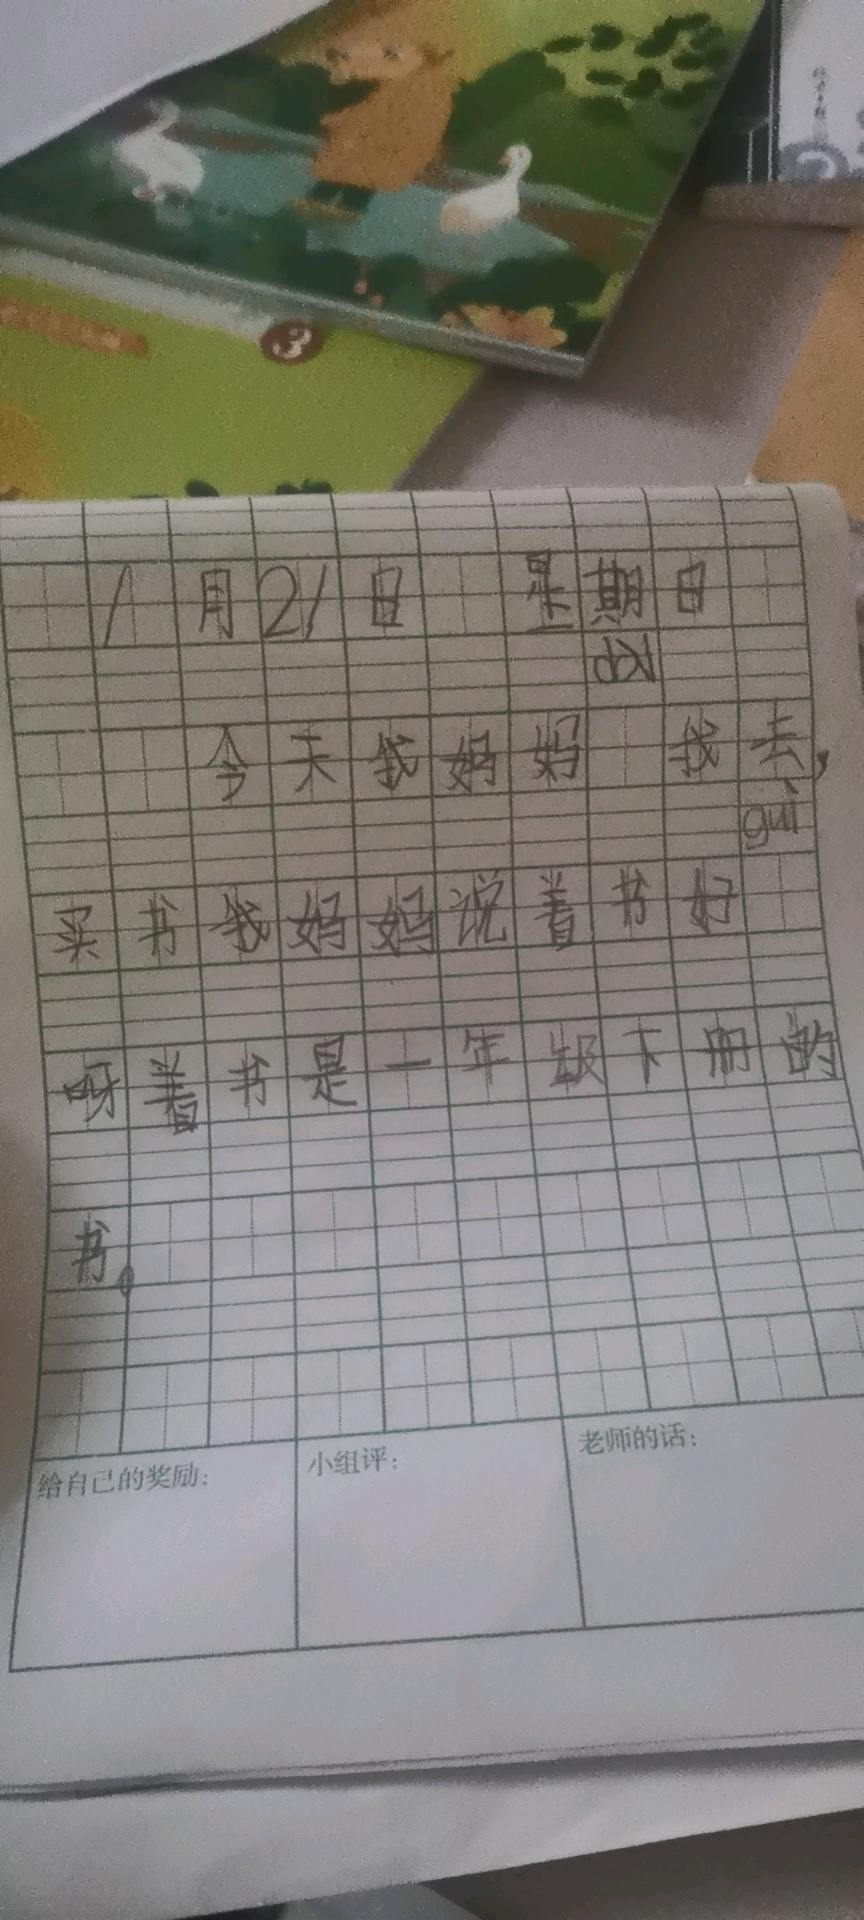 1月21日 星期日
dai
今天我妈妈 我去,
guì
买书我妈妈说着书好
呀着书是一年级下册的
书。
给自己的奖励: 小组评: 老师的话: